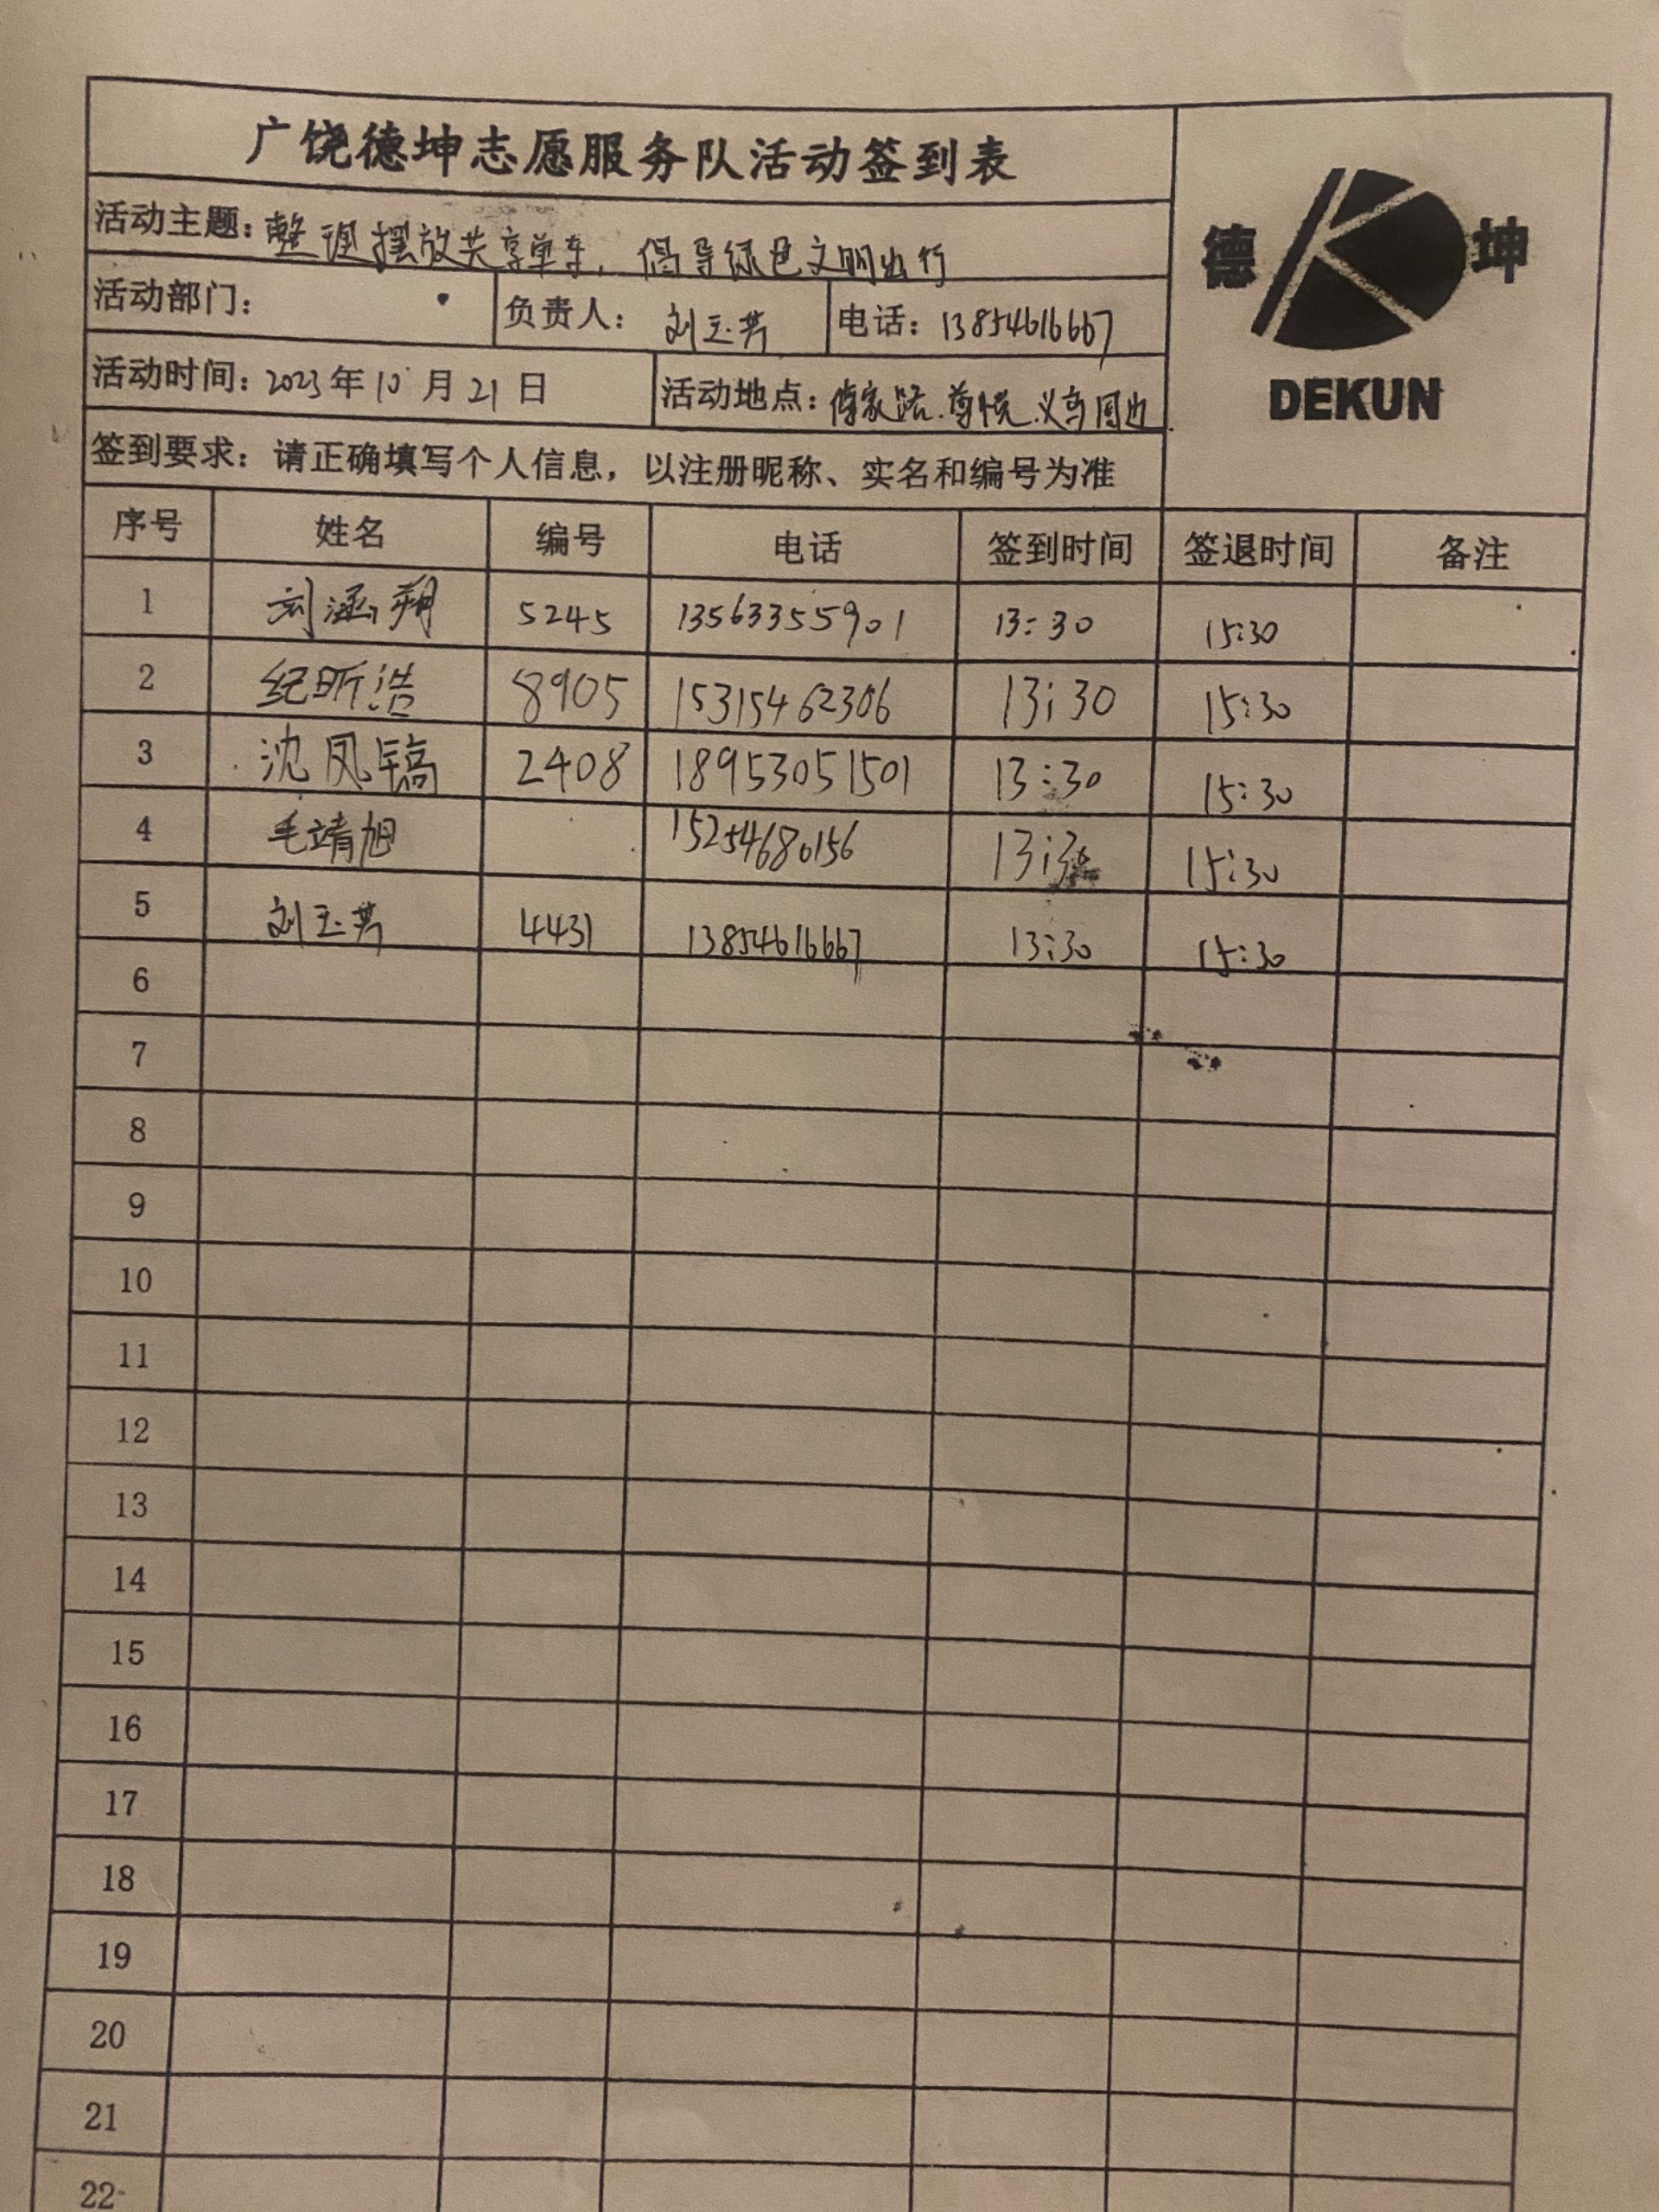 广饶德坤志愿服务队活动签到表
德 坤
DEKUN
活动主题：整理摆放共享单车，倡导绿色文明出行
活动部门： 负责人：刘玉芳 电话：13854616667
活动时间：2023年10月21日 活动地点：傅家路.尊悦.义乌周边
签到要求：请正确填写个人信息，以注册昵称、实名和编号为准
序号 姓名 编号 电话 签到时间 签退时间 备注
1 刘涵朔 5245 13563355901 13:30 15:30
2 纪昕浩 8905 15315462306 13:30 15:30
3 沈凤镐 2408 18953051501 13:30 15:30
4 毛靖旭 15254680156 13:30 15:30
5 刘玉芳 4431 13854616667 13:30 15:30
6
7
8
9
10
11
12
13
14
15
16
17
18
19
20
21
22